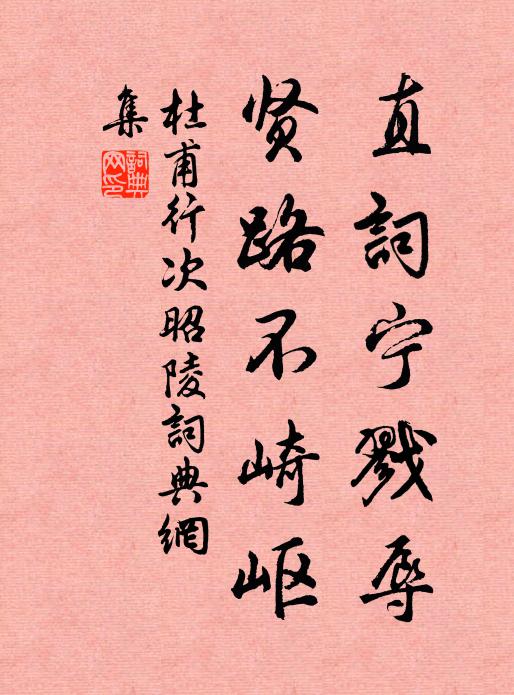 直詞宁戮辱
贤路不崎岖
杜甫行次昭陵詞典網
集
詞典网印